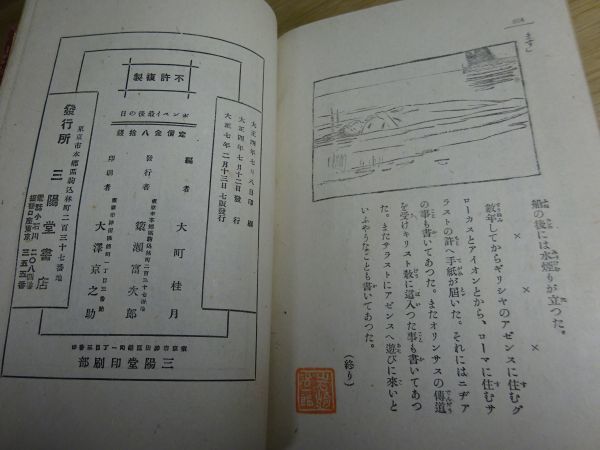 ます」
船の後には水煙りが立つた。
×
×
×
數年してからギリシヤのアゼンスに住むグ
ローカスとアイオンとから、ローマに住むサ
ラストの許へ手紙が届いた。それにはニヂア
の事も書いてあつた。またオリンサスの傳道
を受けキリスト教に這入つた事も書いてあつ
た。またサラストにアゼンスへ遊びに來いと
いふやうなことも書いてあつた。
(終り)
大正四年七月八日印刷
大正四年七月十二日發行
大正七年二月十三日七版發行
不許複製
ポンペイ最後の日
定價金八拾錢
編者
大町桂月
發行者
東京市本郷區駒込林町二百三十七番地
猿瀬富次郎
印刷者
大澤京之助
三陽堂印刷部
發行所
東京市本郷區駒込林町二百三十七番地
三陽堂書店
電話小石川二〇八四番
振替口座東京三五五番